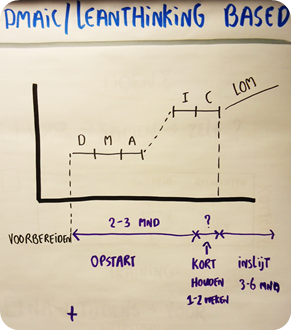 DMAIC/LEANTHINKING BASED
LOM
I C
D M A
2-3 MND ?
VOORBEREIDEN
OPSTART KORT INSLIJT
HOUDEN 3-6 MND
1-2 WEKEN
+